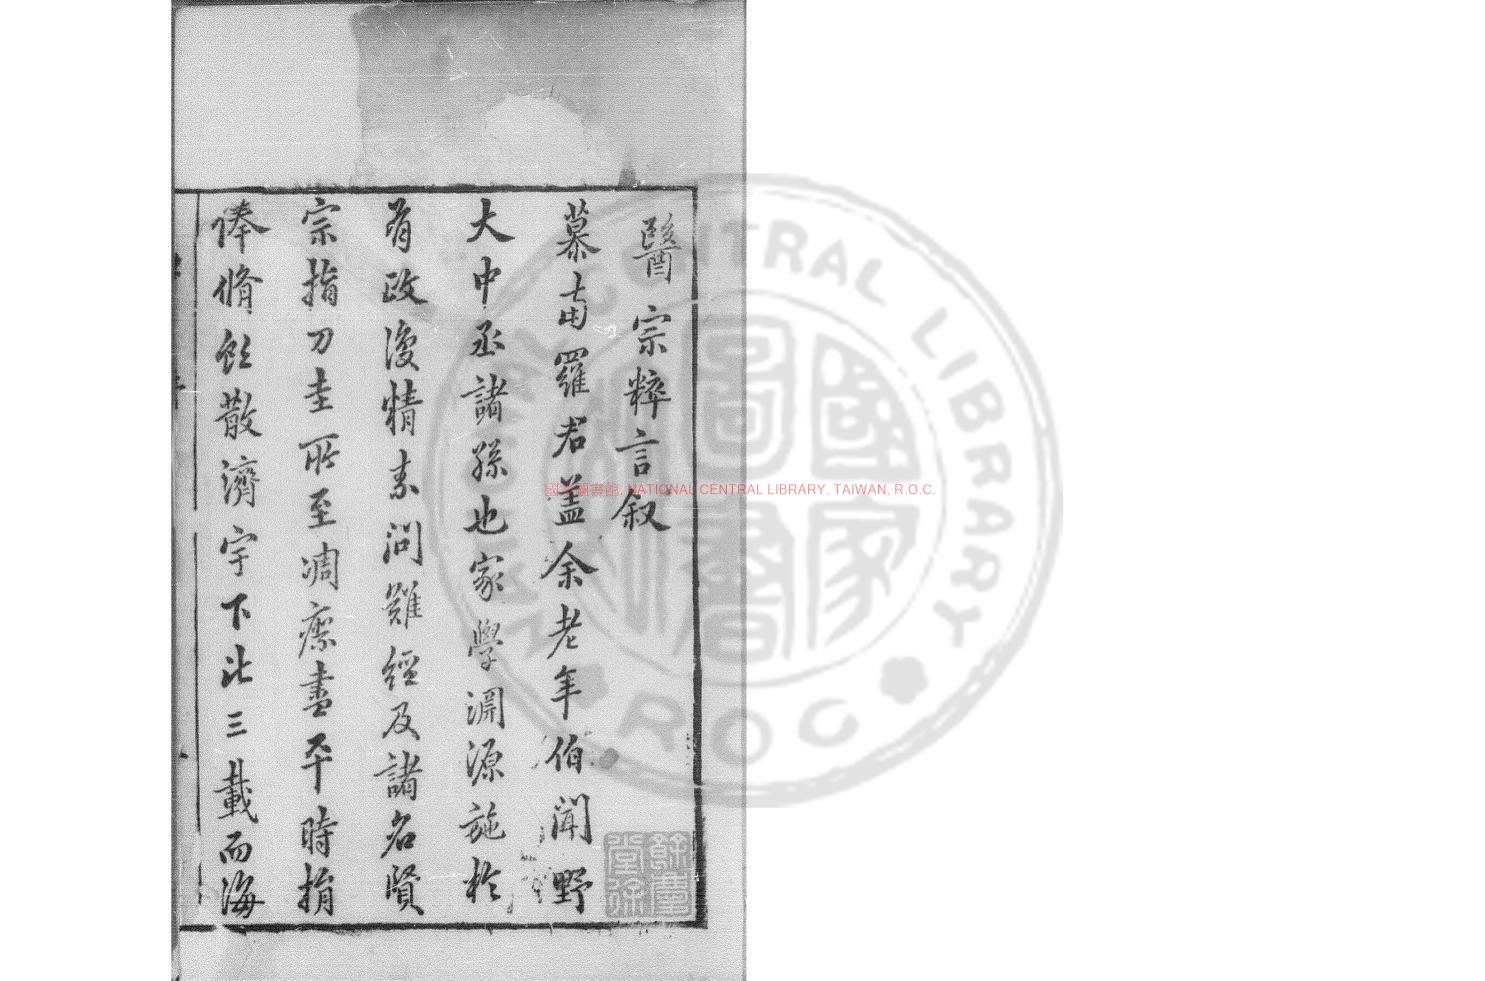 醫宗粹言叙
慕齋羅君蓋余老年伯聞野
大中丞諸孫也家學淵源施於
有政復精素問難經及諸名賢
宗指刀圭所至凋瘵盡平時捐
俸脩飲散濟宇下比三載而海
國家圖書館, NATIONAL CENTRAL LIBRARY, TAIWAN, R.O.C.
國家圖書館
NATIONAL CENTRAL LIBRARY
ROC